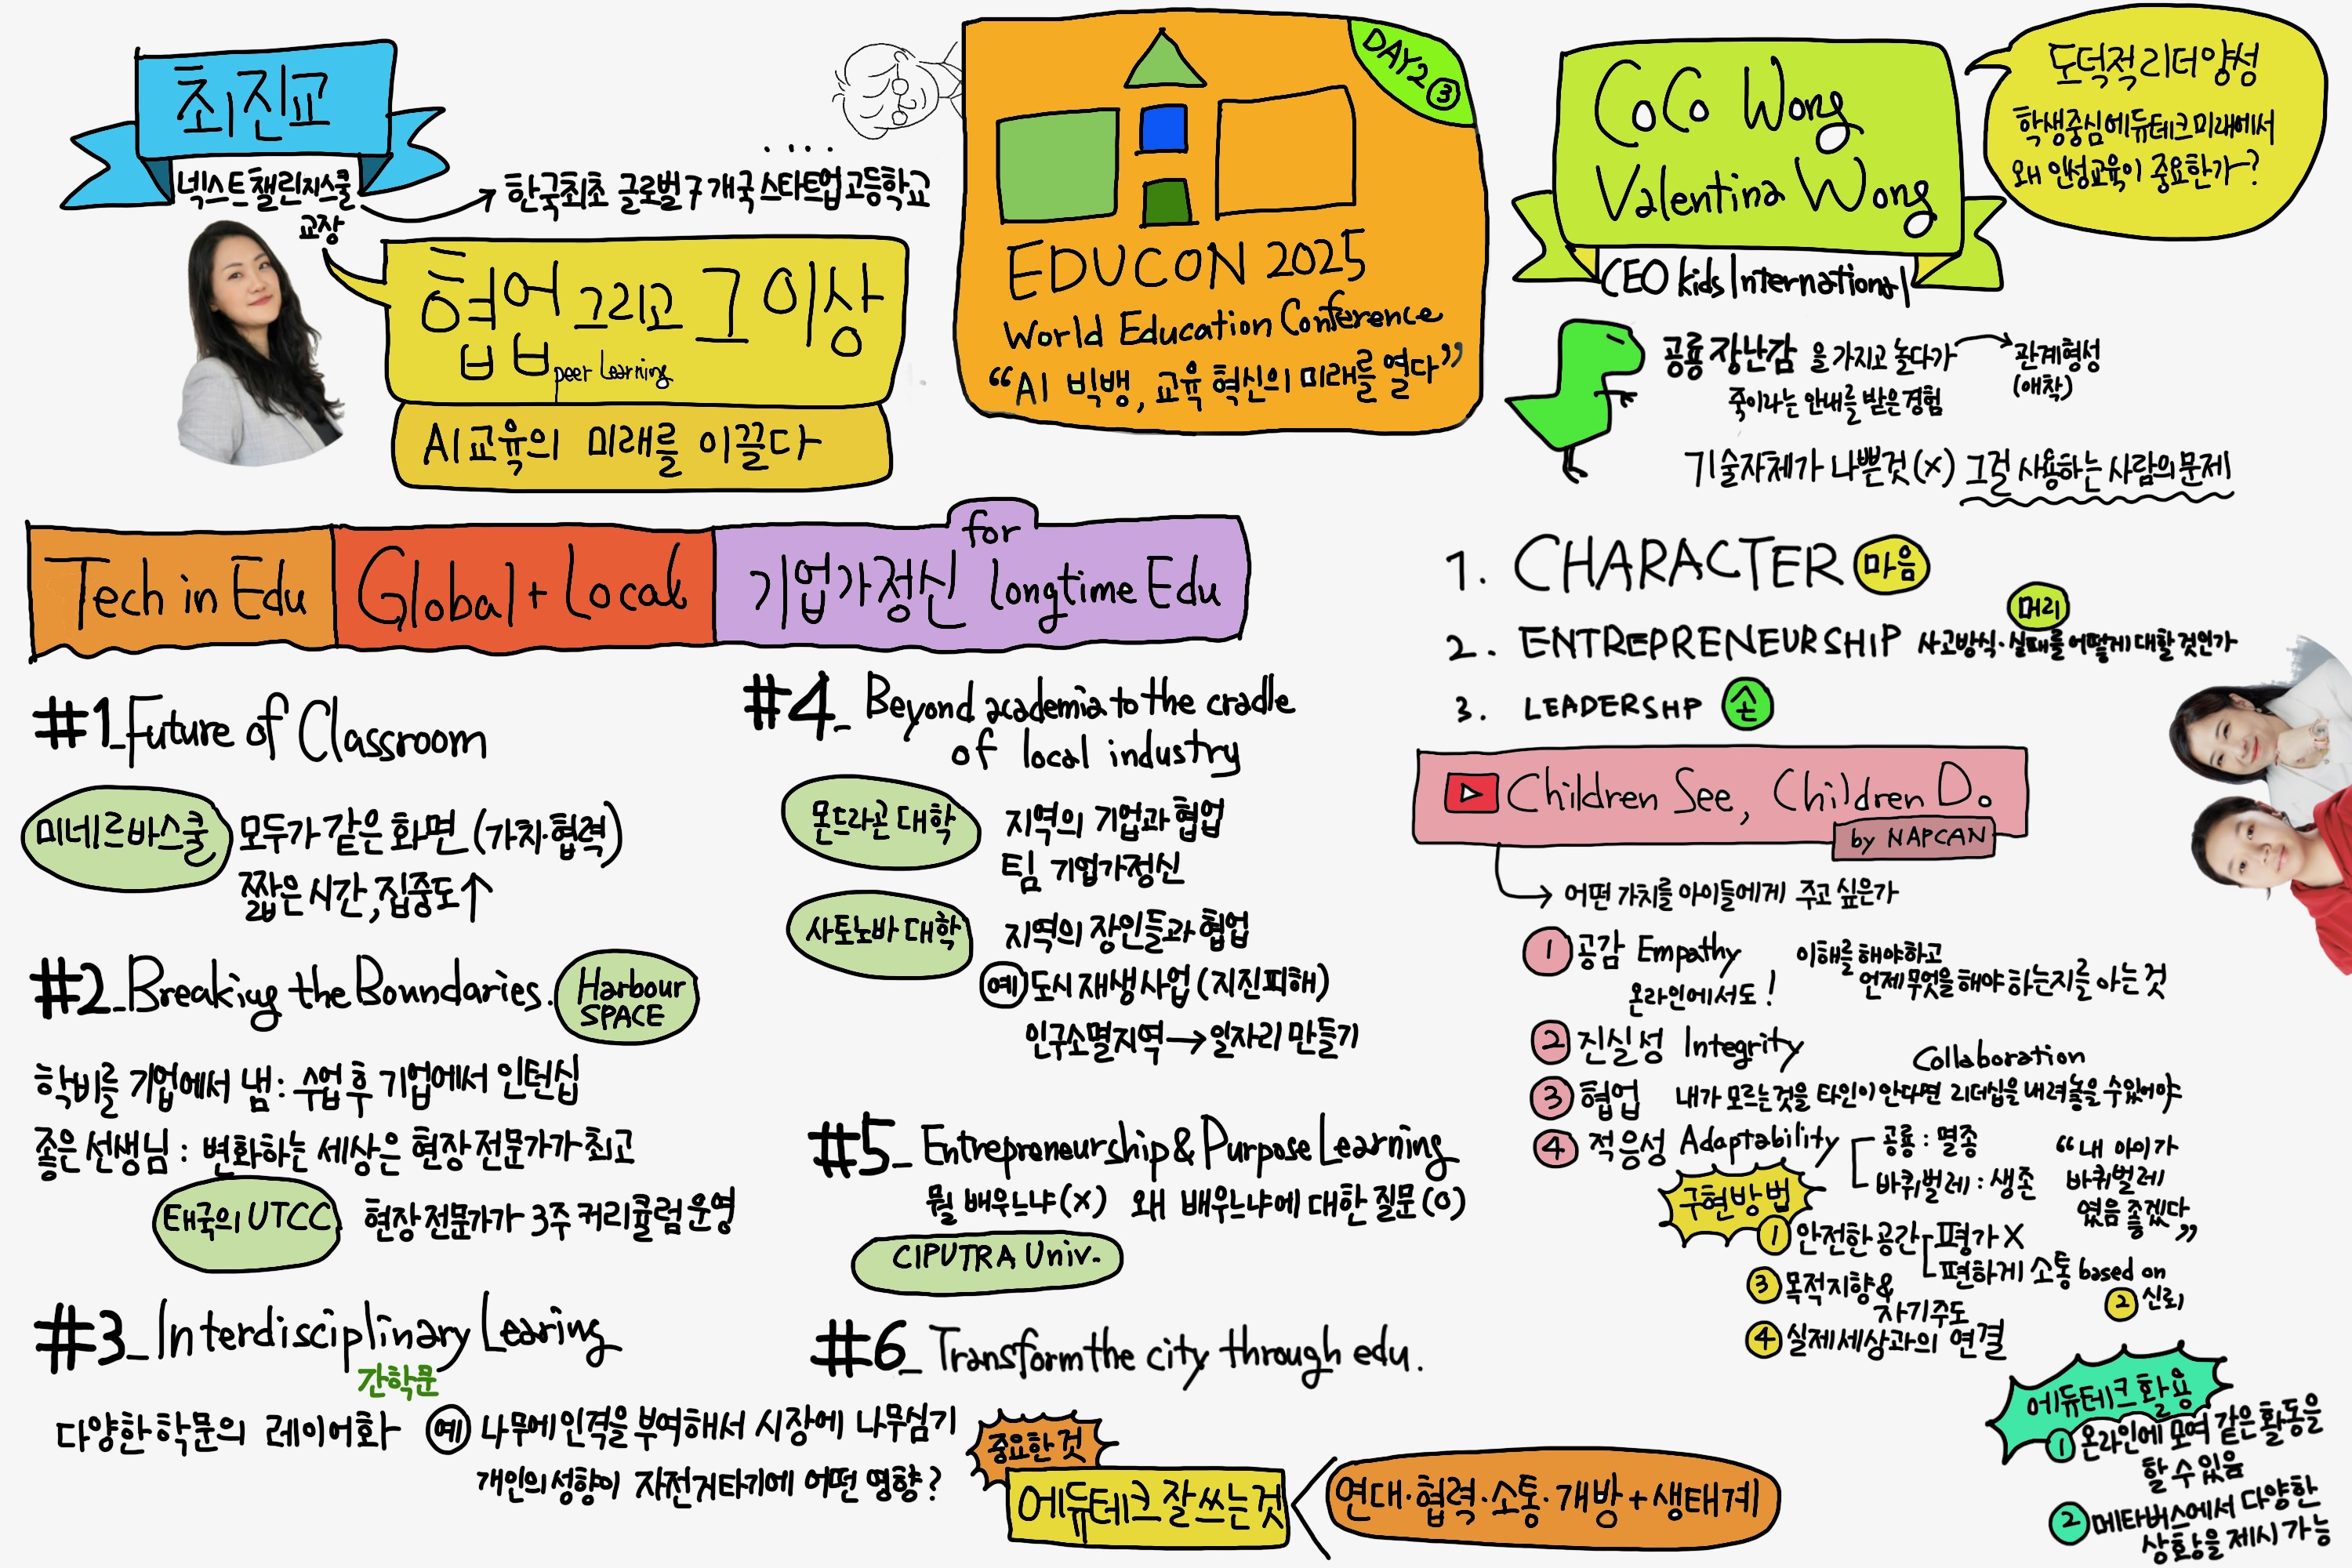 최진교
넥스트챌린지스쿨
교장
한국최초 글로벌 7개국 스타트업고등학교
협업 그리고 그 이상
peer Learning
AI교육의 미래를 이끌다
DAY2 ③
EDUCON 2025
World Education Conference
“AI 빅뱅, 교육 혁신의 미래를 열다”
CoCo Wong
Valentina Wong
CEO kids International
도덕적 리더 양성
학생중심에듀테크미래에서
왜 인성교육이 중요한가?
공룡 장난감을 가지고 놀다가 → 관계형성
(애착)
죽이라는 안내를 받은 경험
기술자체가 나쁜것(x) 그걸 사용하는 사람의 문제
Tech in Edu
Global + Local
for
기업가정신 longtime Edu
#1_Future of Classroom
미네르바스쿨
모두가 같은 화면 (가치·협력)
짧은 시간, 집중도↑
#2_Breaking the Boundaries.
Harbour
SPACE
학비를 기업에서 냄 : 수업 후 기업에서 인턴십
좋은 선생님 : 변화하는 세상은 현장 전문가가 최고
태국의 UTCC
현장 전문가가 3주 커리큘럼 운영
#3_Interdisciplinary Learing
간학문
다양한 학문의 레이어화
예 나무에 인격을 부여해서 시장에 나무심기
개인의 성향이 자전거타기에 어떤 영향?
#4_Beyond academia to the cradle
of local industry
몬드라곤 대학
지역의 기업과 협업
팀 기업가정신
사토노바 대학
지역의 장인들과 협업
예 도시 재생사업 (지진피해)
인구소멸지역 → 일자리 만들기
#5_Entrepreneurship & Purpose Learning
뭘 배우느냐(x) 왜 배우느냐에 대한 질문(o)
CIPUTRA Univ.
#6_Transform the city through edu.
중요한 것
에듀테크 잘쓰는것
연대·협력·소통·개방+생태계
1. CHARACTER 마음
머리
2. ENTREPRENEURSHIP 사고방식·실패를 어떻게 대할 것인가
3. LEADERSHP 손
Children See, Children D.
by NAPCAN
어떤 가치를 아이들에게 주고 싶은가
① 공감 Empathy
온라인에서도!
이해를 해야하고
언제 무엇을 해야 하는지를 아는 것
② 진실성 Integrity
Collaboration
③ 협업 내가 모르는 것을 타인이 안다면 리더십을 내려놓을 수 있어야
④ 적응성 Adaptability
공룡 : 멸종
바퀴벌레 : 생존
“내 아이가
바퀴벌레
였음 좋겠다”
구현방법
① 안전한 공간
평가 X
편하게 소통 based on
② 신뢰
③ 목적지향&
자기주도
④ 실제세상과의 연결
에듀테크 활용
① 온라인에 모여 같은 활동을
할 수 있음
② 메타버스에서 다양한
상황을 제시 가능